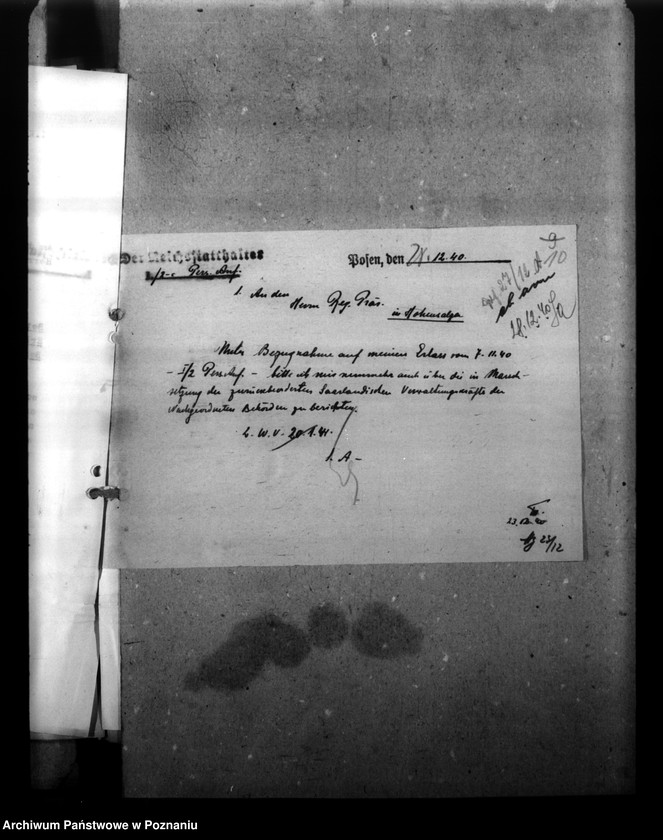 Der Reichsstatthalter
I/2 Pers. Auf.
Posen, den 24.12.40.
9
10
gef 27/12
ab am
28.12.40
1. An den
Herrn Reg. Präs.
in Hohensalza
Unter Bezugnahme auf meinen Erlass vom 7.11.40
- I/2 Pers Auf. - bitte ich mir nunmehr auch über die in Marsch-
setzung der zurückbeorderten Saarländischen Verwaltungskräfte der
Nachgeordneten Behörden zu berichten.
2. W. V. 20.1.41.
I. A.
23.12.40
23/12
Archiwum Państwowe w Poznaniu